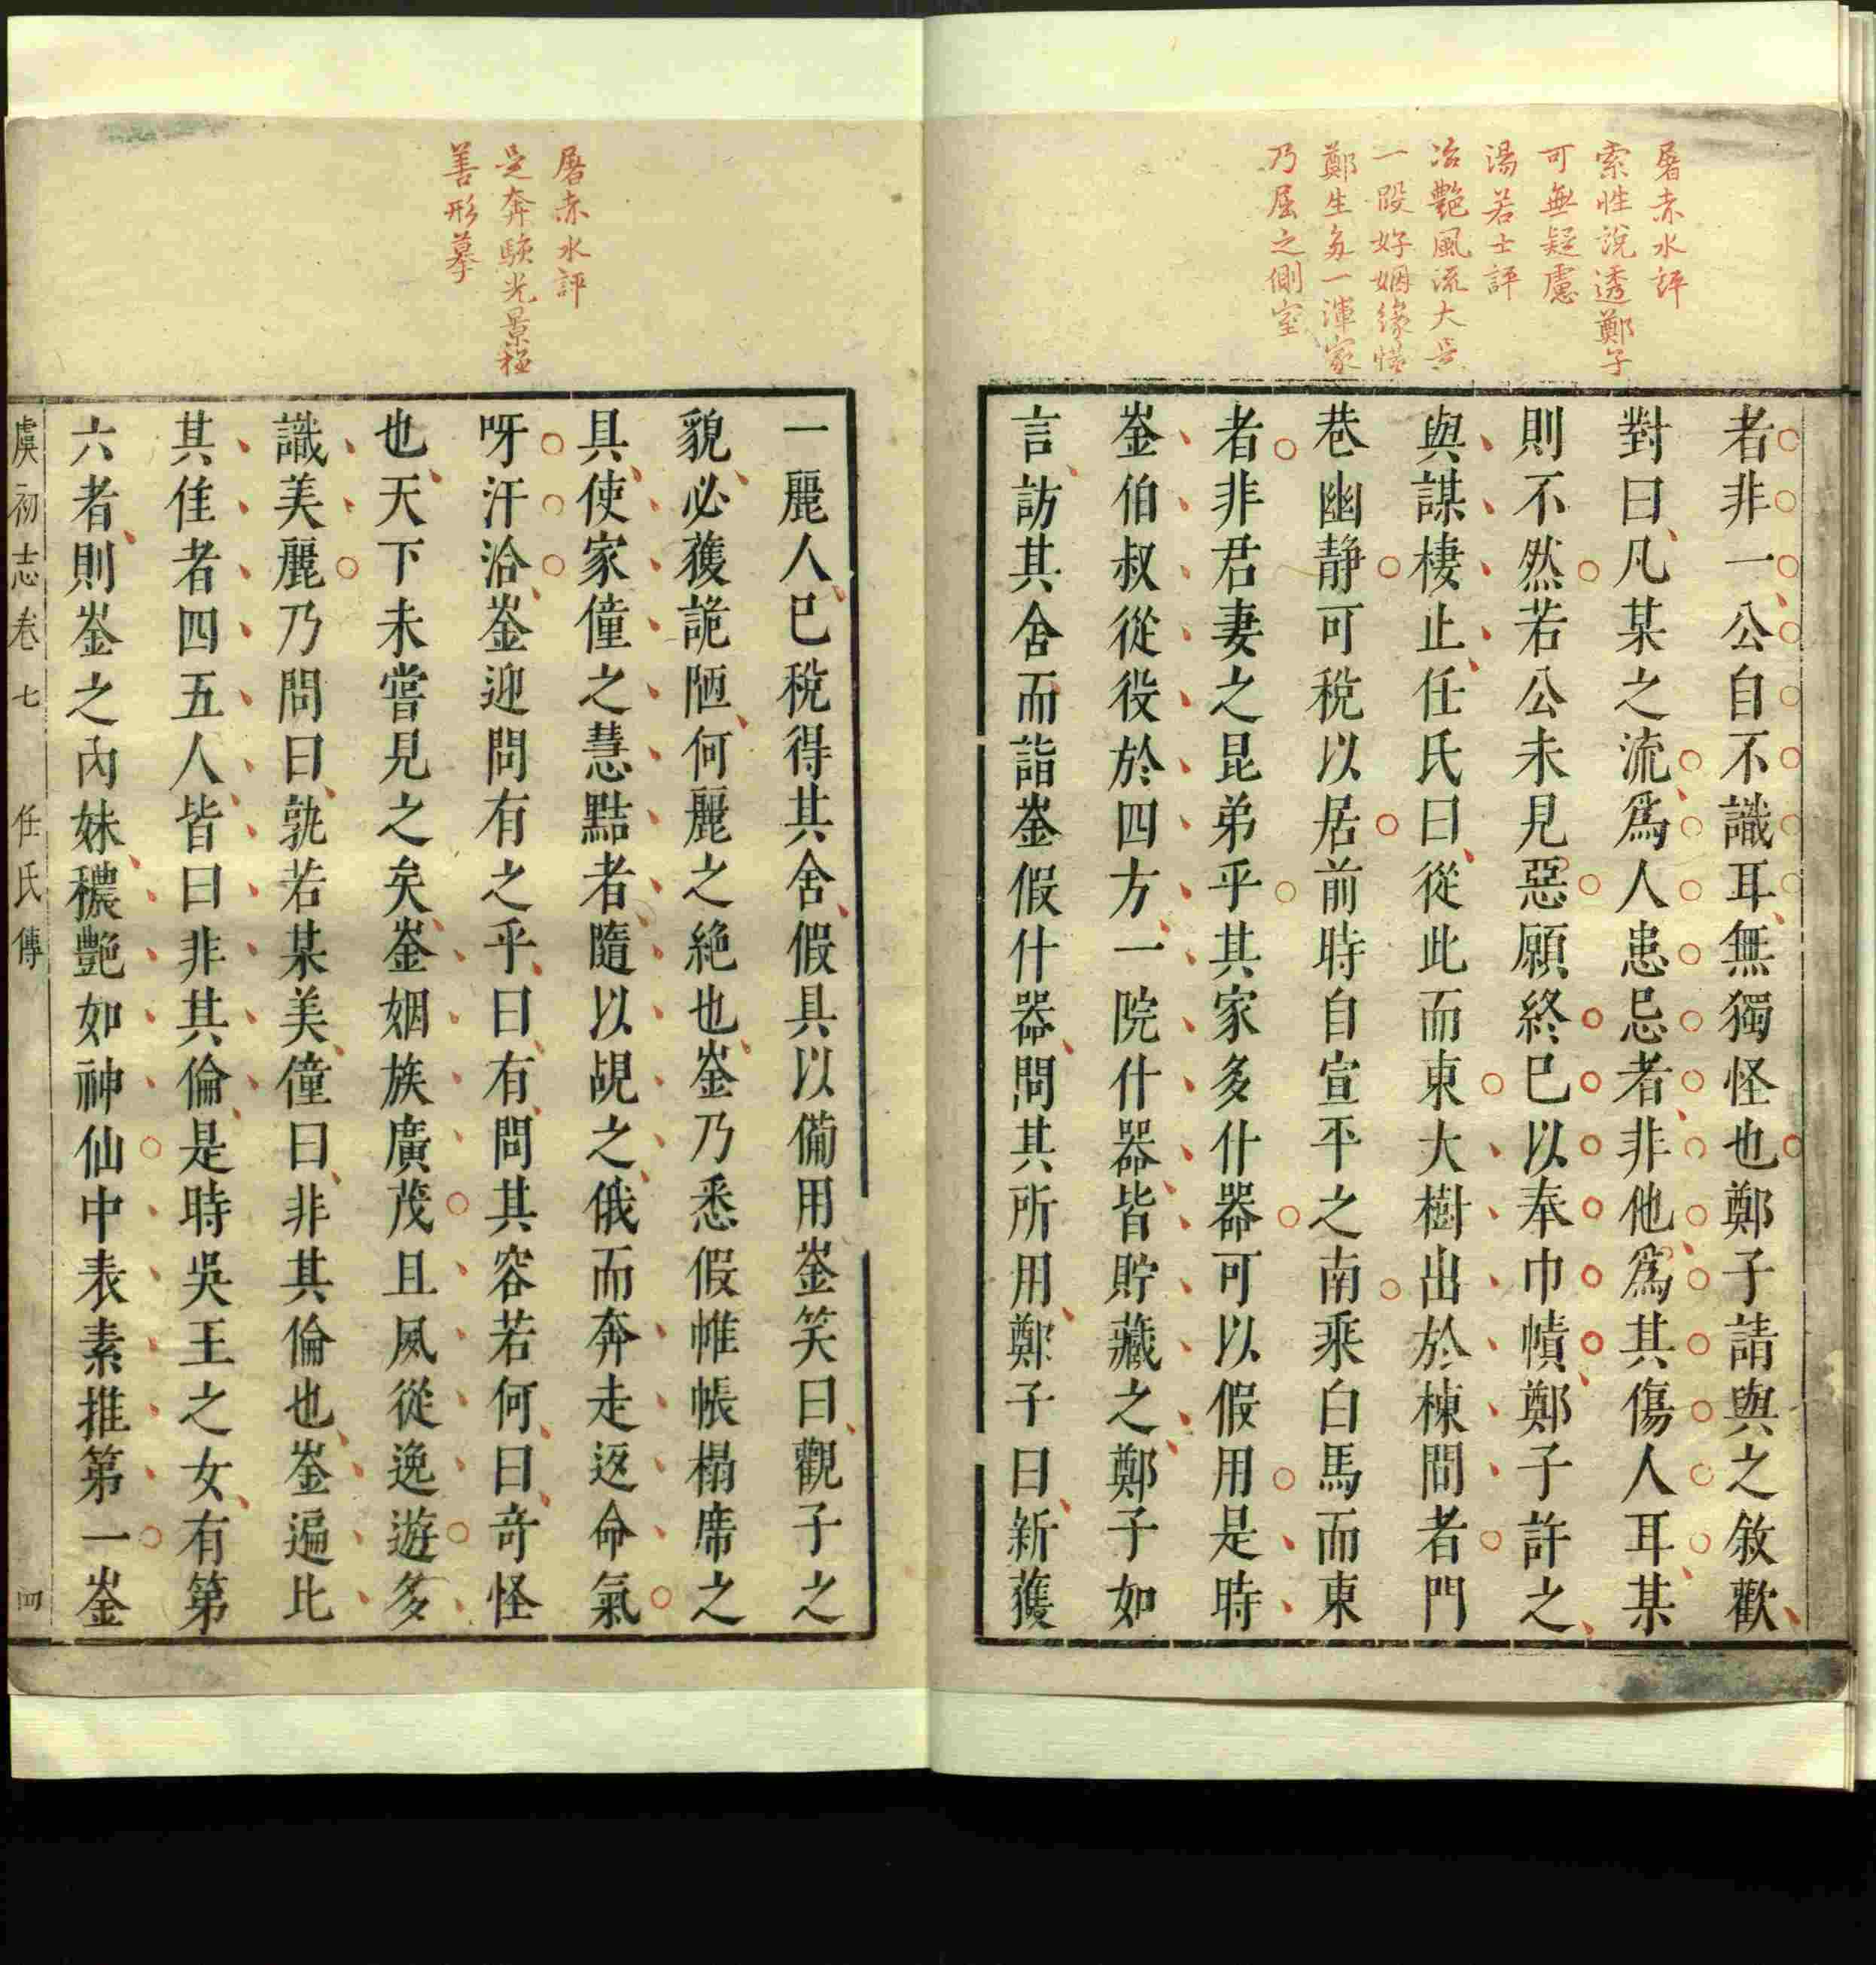 屠赤水評
索性說透鄭子
可無疑慮
湯若士評
冶艷風流大是
一段好姻緣惜
鄭生多一渾家
乃屈之側室
者非一公自不識耳無獨怪也鄭子請與之敘歡
對曰凡某之流爲人患忌者非他爲其傷人耳某
則不然若公未見惡願終已以奉巾幘鄭子許之
與謀棲止任氏曰從此而東大樹出於棟間者門
巷幽静可稅以居前時自宣平之南乘白馬而東
者非君妻之昆弟乎其家多什器可以假用是時
崟伯叔從役於四方一院什器皆貯藏之鄭子如
言訪其舍而詣崟假什器問其所用鄭子曰新獲
屠赤水評
是奔駭光景極
善形摹
一麗人已稅得其舍假具以備用崟笑曰觀子之
貌必獲詭陋何麗之絶也崟乃悉假帷帳榻席之
具使家僮之慧黠者隨以覘之俄而奔走返命氣
呀汗洽崟迎問有之乎曰有問其容若何曰奇怪
也天下未嘗見之矣崟姻族廣茂且夙從逸遊多
識美麗乃問曰孰若某美僮曰非其倫也崟遍比
其佳者四五人皆曰非其倫是時吳王之女有第
六者則崟之內妹穠艷如神仙中表素推第一崟
虞初志卷七 任氏傳 四